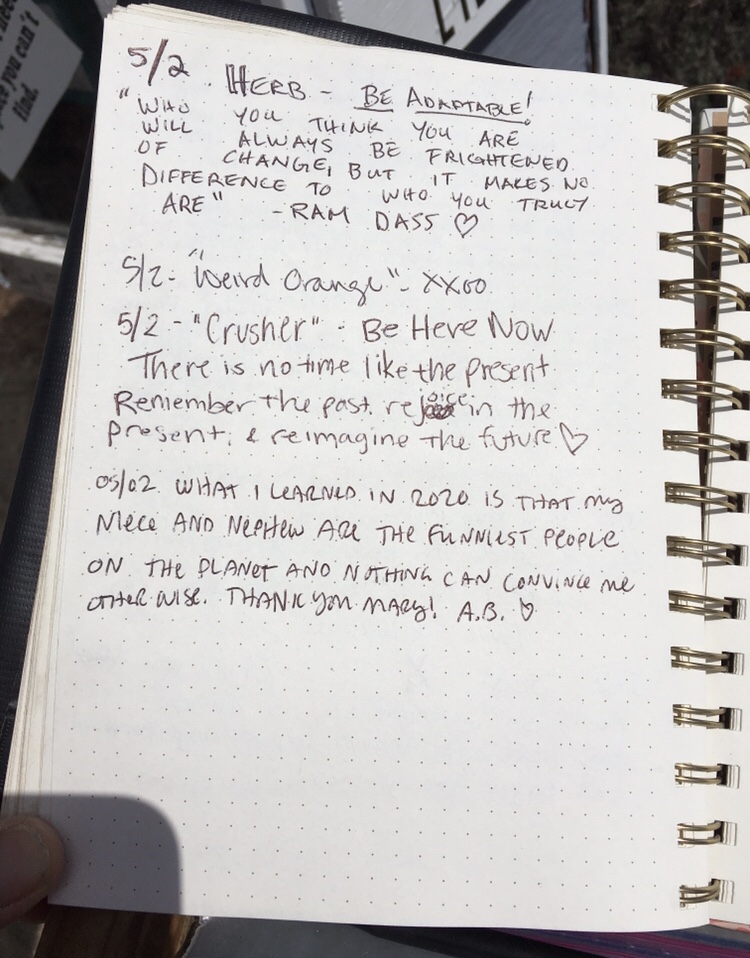 5/2 HERB - BE ADAPTABLE!
"WHO YOU THINK YOU ARE
WILL ALWAYS BE FRIGHTENED
OF CHANGE, BUT IT MAKES NO
DIFFERENCE TO WHO YOU TRULY
ARE" - RAM DASS ♡
5/2 - "Weird Orange" - XXOO
5/2 - "Crusher" - Be Here Now
There is no time like the present
Remember the past, rejoice in the
present, & reimagine the future ♡
05/02 WHAT I LEARNED IN 2020 IS THAT MY
NIECE AND NEPHEW ARE THE FUNNIEST PEOPLE
ON THE PLANET AND NOTHING CAN CONVINCE ME
OTHERWISE. THANK YOU MARY! A.B. ♡
you can't
find.